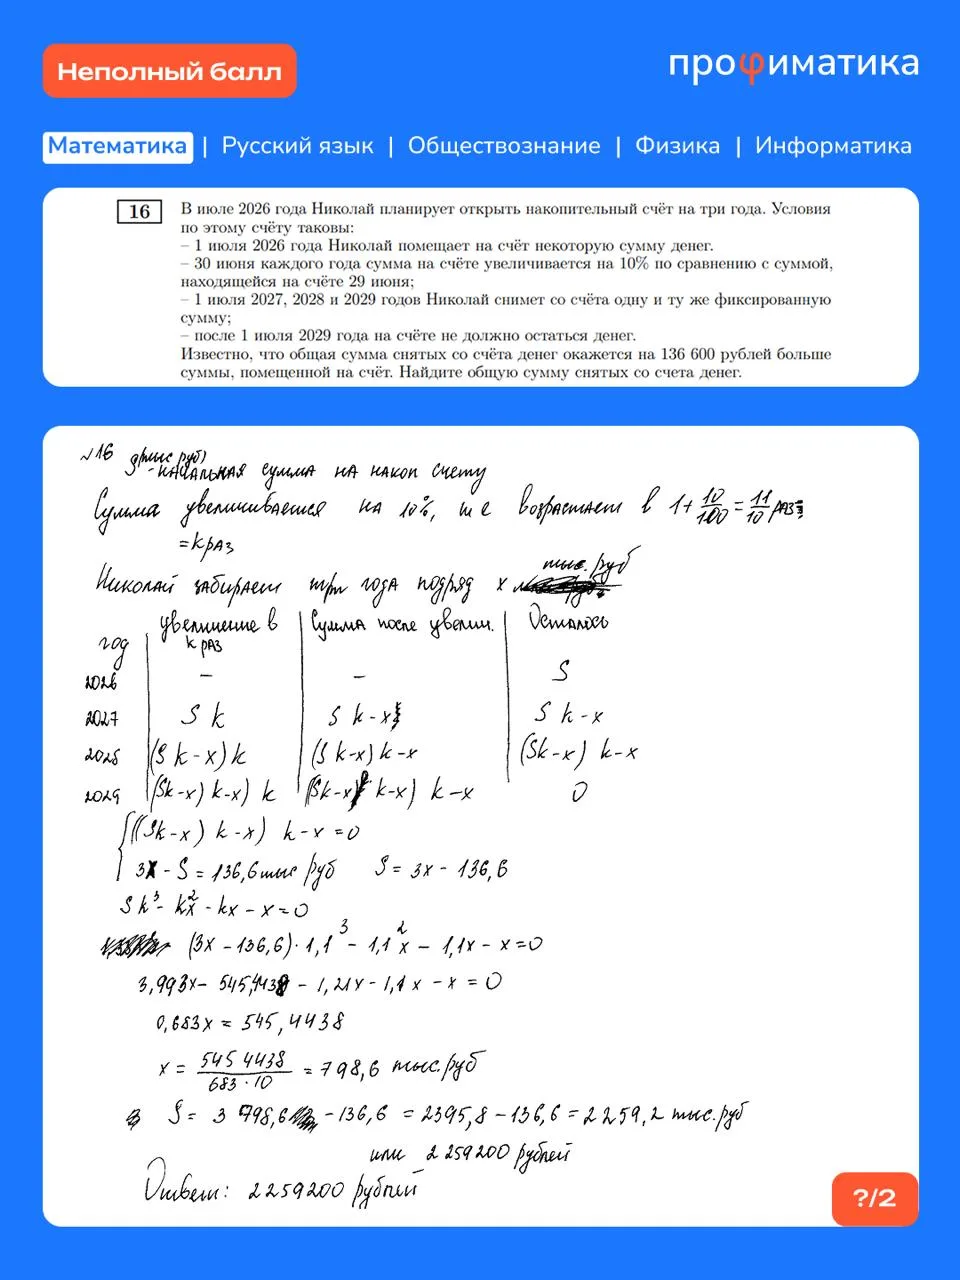 Неполный балл
профиматика
Математика | Русский язык | Обществознание | Физика | Информатика
16
В июле 2026 года Николай планирует открыть накопительный счёт на три года. Условия
по этому счёту таковы:
– 1 июля 2026 года Николай помещает на счёт некоторую сумму денег.
– 30 июня каждого года сумма на счёте увеличивается на 10% по сравнению с суммой,
находящейся на счёте 29 июня;
– 1 июля 2027, 2028 и 2029 годов Николай снимет со счёта одну и ту же фиксированную
сумму;
– после 1 июля 2029 года на счёте не должно остаться денег.
Известно, что общая сумма снятых со счёта денег окажется на 136 600 рублей больше
суммы, помещенной на счёт. Найдите общую сумму снятых со счета денег.
№16 S (тыс руб) - начальная сумма на накоп счету
Сумма увеличивается на 10%, т.е возрастает в 1+10/100=11/10 раз
=k раз
Николай забирает три года подряд x тыс. руб
год | увеличение в k раз | Сумма после увелич. | Осталось
2026 | – | – | S
2027 | S k | S k-x | S k-x
2028 | (S k-x) k | (S k-x) k-x | (Sk-x) k-x
2029 | (Sk-x) k-x) k | ((Sk-x) k-x) k-x | 0
{ ((Sk-x) k-x) k-x=0
3x - S = 136,6 тыс руб S = 3x - 136,6
S k³ - k²x - kx - x=0
(3x-136,6)·1,1³ - 1,1²x - 1,1x - x=0
3,993x - 545,4438 - 1,21x - 1,1x - x = 0
0,683x = 545,4438
x = 545 4438/683·10 = 798,6 тыс.руб
S = 3 798,6 - 136,6 = 2395,8 - 136,6 = 2259,2 тыс.руб
или 2 259200 рублей
Ответ: 2259200 рублей
?/2